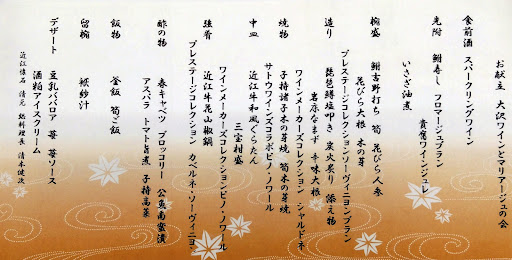 お献立 大沢ワインとマリアージュの会
食前酒 スパークリングワイン
先附 鮒寿し フロマージュブラン
貴腐ワインジュレ
いさざ油煮
椀盛 鮒吉野打ち 筍 花びら人参
花びら大根 木の芽
プレステージコレクションソーヴィニヨンブラン
造り 琵琶鱒塩叩き 炭火炙り 添え物
岩床なまず 辛味大根
ワインメーカーズコレクション シャルドネ
焼物 子持諸子木の芽焼 筍木の芽焼
サトウワインズコラボピノ・ノワール
中皿 近江牛和風ぐらたん
三宝柑盛
ワインメーカーズコレクションピノ・ノワール
強肴 近江牛花山椒鍋
プレステージコレクション カベルネ・ソーヴィニヨン
酢の物 春キャベツ ブロッコリー 公魚南蛮漬
アスパラ トマト旨煮 子持高菜
飯物 釜飯 筍ご飯
留椀 粕汁
デザート 豆乳ババロア 苺 苺ソース
酒粕アイスクリーム
近江懐石 清元 総料理長 清本健次